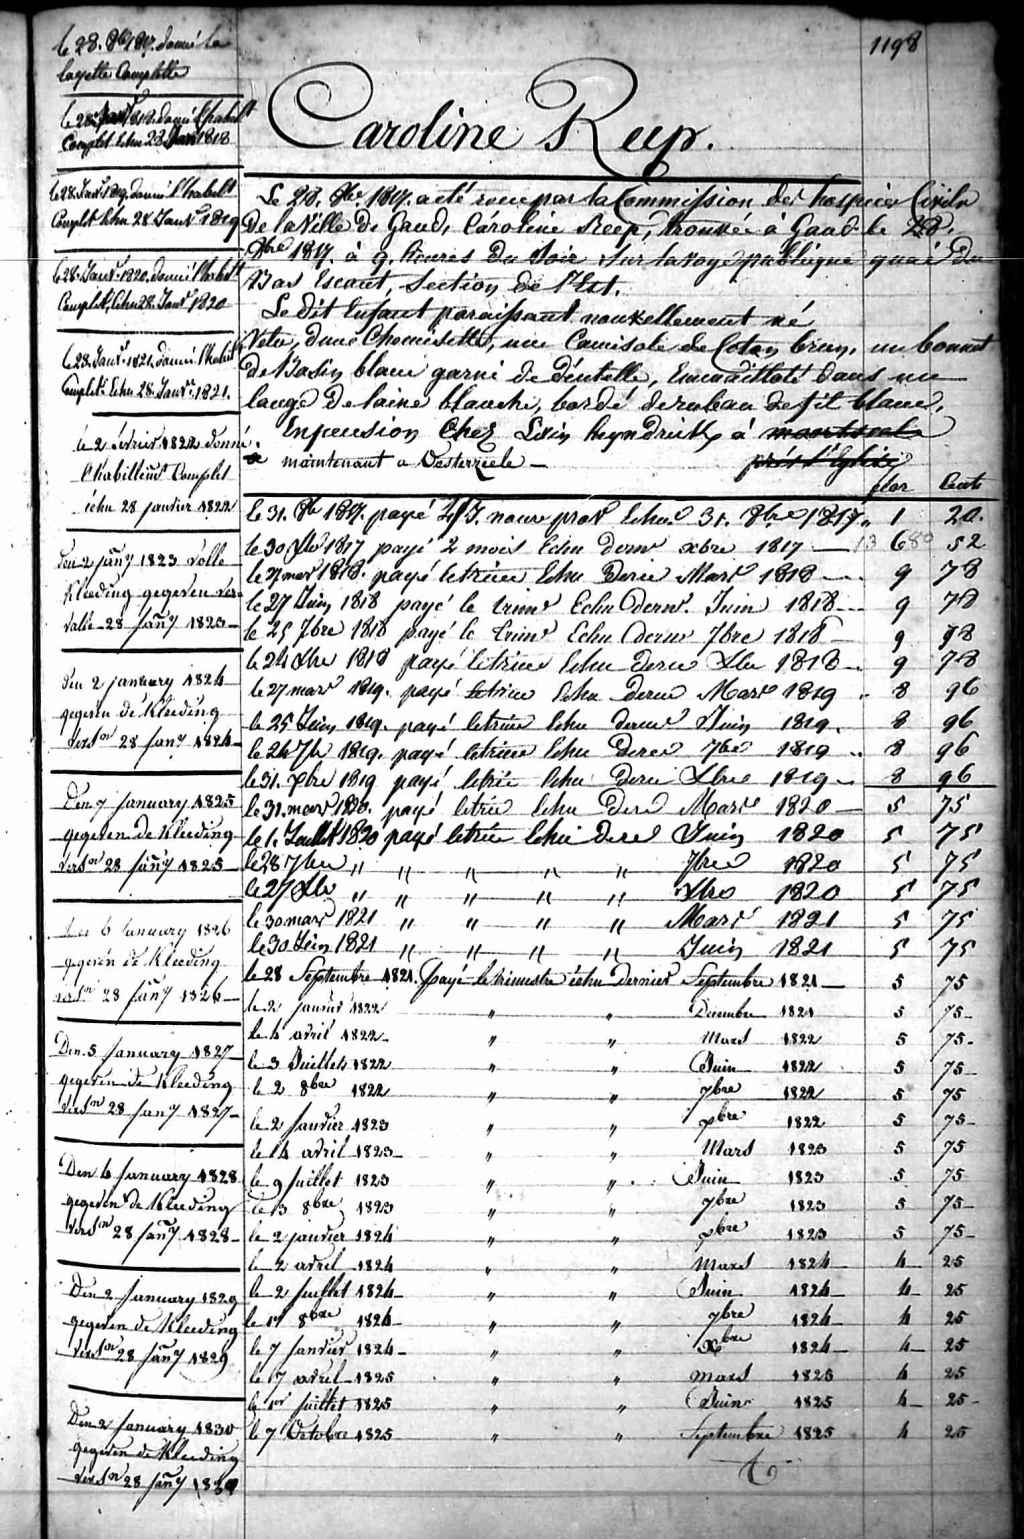 1198
le 28. 8bre 1817. donné la
layette Complette
le 28 Janvr 1818 donné l'habilt
Complet Echu 28 Janr 1818
le 28. Janvr. 1819. donné l'habillt
Complet Echu 28 Janvr. 1819
le 28. Janvr. 1820. donné l'habillt
Complet, Echu 28. Janvr 1820
le 28 Janvr. 1821. donné l'habillt
Complet Echu 28. Janvr. 1821.
le 2 fevrier 1822 donné
l'habillemt Complet
échu 28 janvier 1822
Den 2 Jany 1823 volle
Kleeding gegeven ver-
valle 28 Jany 1823
Den 2 january 1824
gegeven de Kleeding
vers.en 28 Jany 1824
Den 7 January 1825
gegeven de Kleeding
vers.en 28 Jany 1825
Den 6 January 1826
gegeven de Kleeding
vers.en 28 Jany 1826
Den 5 January 1827
gegeven de Kleeding
vers.en 28 Jany 1827
Den 4 January 1828
gegeven de Kleeding
vers.en 28 Jany 1828
Den 2 January 1829
gegeven de Kleeding
vers.en 28 Jany 1829
Den 2 January 1830
gegeven de Kleeding
vers.en 28 Jany 1830
Caroline Reep.
Le 28. 8bre 1817. a été recu par la Commission des hospices Civils
De la Ville De Gand, Caroline Reep, trouvée à Gand le 28.
8bre 1817. à 9. heures Du Soir Sur la voye publique quai du
Bas Escaut, Section de l'Est.
Le Dit Enfant paraissant nouvellement né
Vetu, d'une Chemisette, une Camisole de Coton brun, un bonnet
De Basin blanc garni de Dentelle, Emmailloté Dans une
lange De laine blanche, bordé de ruban de fil blanc.
En pension Chez Livin heyndrickx à
maintenant a Oosterzeele
près l'Eglise
flor Cents
le 31. 8bre 1817. payé 4/J. nour Echu 31. 8bre 1817 " 1 20.
le 30 Xbre 1817 payé 2 mois Echu dernr xbre 1817 6 52
le 27 mars 1818. payé le trim Echu Dernr Mars 1818 9 78
le 27 Juin 1818 payé le trimr Echu Dernr. Juin 1818 9 78
le 25 7bre 1818 payé le trimr Echu Dernr 7bre 1818 9 78
le 24 Xbre 1818 payé le trim Echu Dernr Xbre 1818 9 78
le 27 mars 1819. payé le trim Echu Dernr Mars 1819 8 96
le 25 Juin 1819. payé le trim Echu dernr Juin 1819. 8 96
le 24 7bre 1819. payé le trim Echu Dernr 7bre 1819 8 96
le 31. Xbre 1819 payé le trim Echu Dernr Xbre 1819 8 96
le 31. mars 1820. payé le trim Echu Dernr Mars 1820 5 75
le 1. Juillet 1820 payé le trim Echu Dernr Juin 1820 5 75
le 28 7bre " " " " " 7bre 1820 5 75
le 27 Xbre " " " " " Xbre 1820 5 75
le 30 mars 1821 " " " " Mars 1821 5 75
le 30 Juin 1821 " " " " Juin 1821 5 75
le 28 Septembre 1821. payé le trimestre échu dernier Septembre 1821 5 75
le 2 janvier 1822 " " Decembre 1821 5 75
le 4 avril 1822 " " Mars 1822 5 75
le 3 Juillet 1822 " " Juin 1822 5 75
le 2 8bre 1822 " " 7bre 1822 5 75
le 2 janvier 1823 " " xbre 1822 5 75
le 4 avril 1823 " " Mars 1823 5 75
le 9 juillet 1823 " " Juin 1823 5 75
le 3 8bre 1823 " " 7bre 1823 5 75
le 2 janvier 1824 " " xbre 1823 5 75
le 2 avril 1824 " " Mars 1824 4 25
le 2 juillet 1824 " " Juin 1824 4 25
le 1r 8bre 1824 " " 7bre 1824 4 25
le 7 janvier 1824 " " xbre 1824 4 25
le 7 avril 1825 " " mars 1825 4 25
le 1er juillet 1825 " " Juin 1825 4 25
le 7 Octobre 1825 " " Septembre 1825 4 25